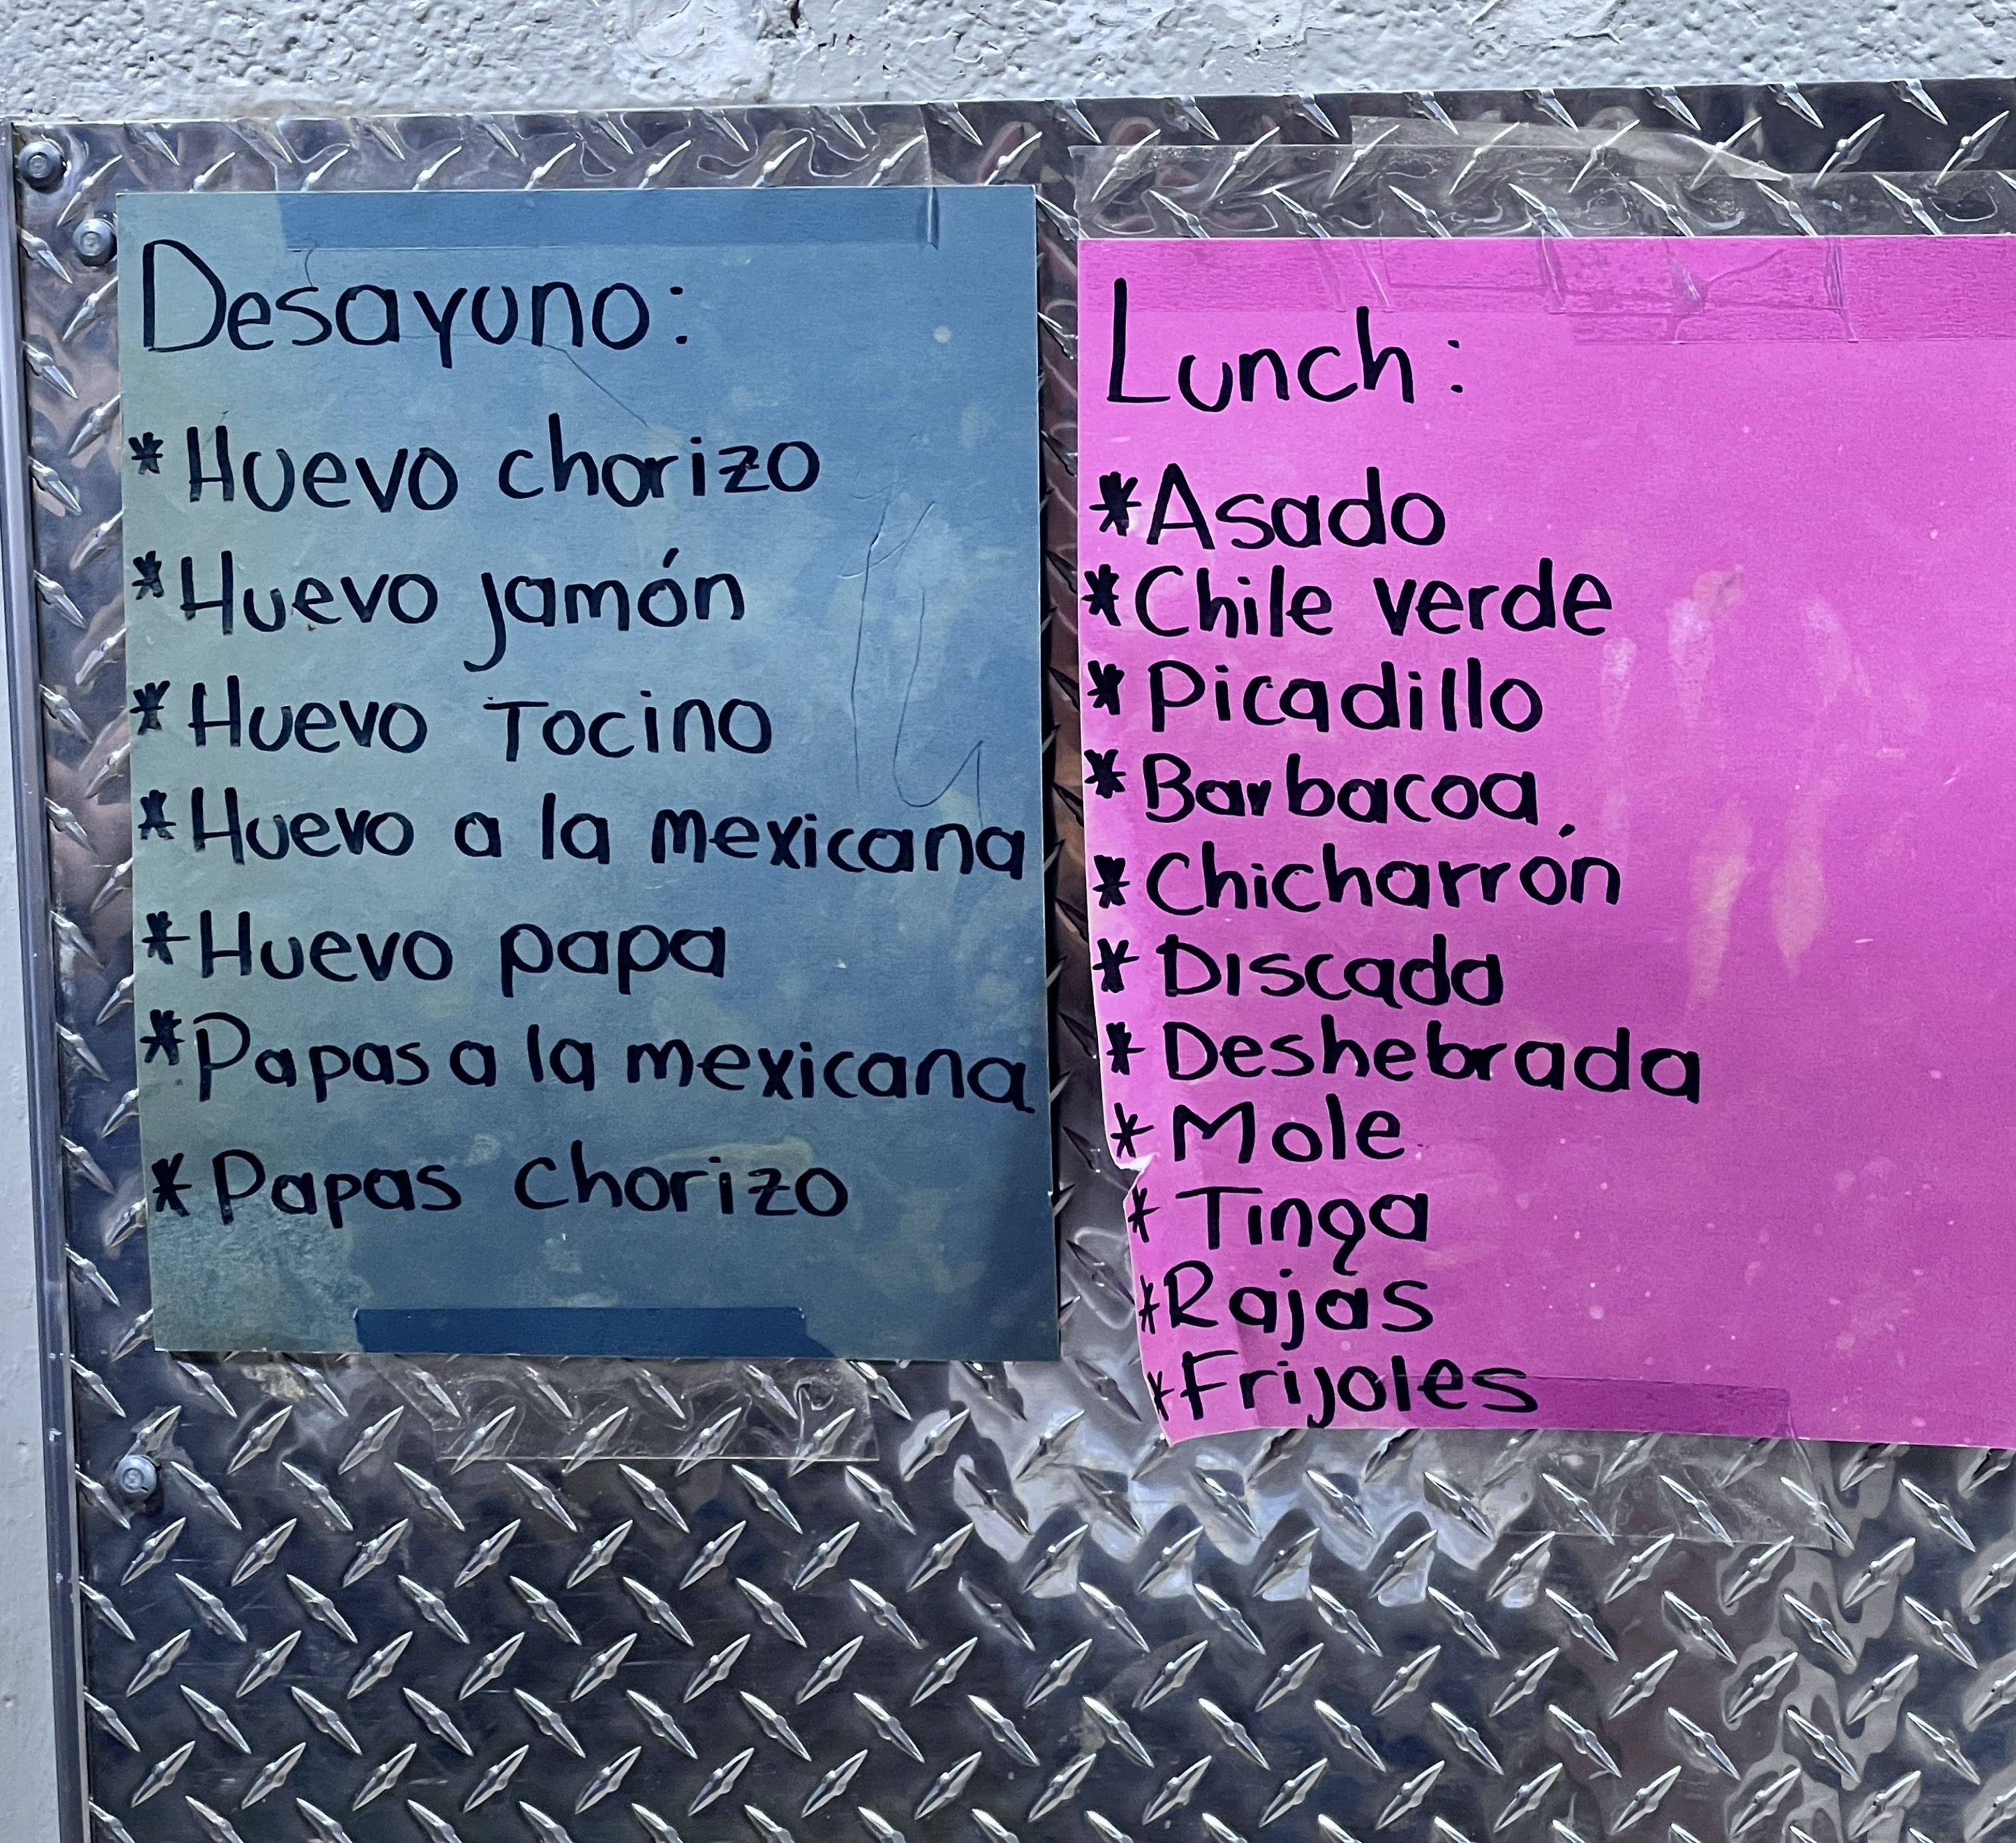 Desayuno:
*Huevo chorizo
*Huevo jamón
*Huevo Tocino
*Huevo a la mexicana
*Huevo papa
*Papas a la mexicana
*Papas chorizo
Lunch:
*Asado
*Chile verde
*Picadillo
*Barbacoa
*Chicharrón
*Discada
*Deshebrada
*Mole
*Tinga
*Rajas
*Frijoles